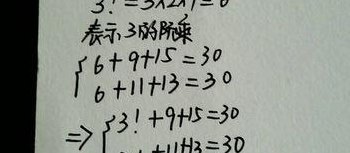 3! = 3×2×1 = 6
表示3的阶乘
{ 6+9+15=30
6+11+13=30
=> { 3!+9+15=30
+11+13=30